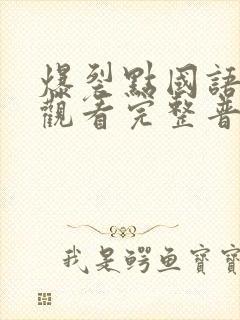 爆裂點國語
觀看完整普
我是鳄鱼寶寶